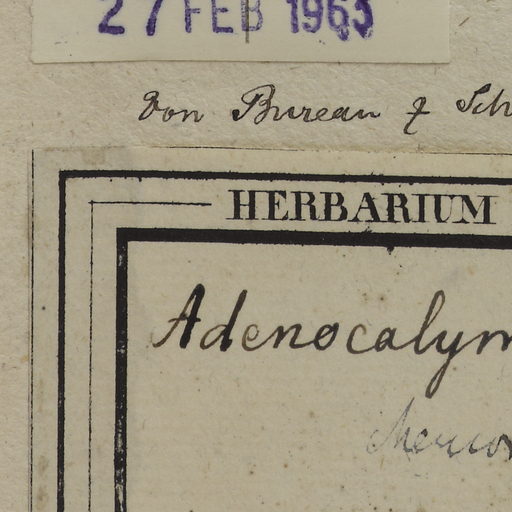 27 FEB 1963
von Bureau & Sch
HERBARIUM
Adenocalym